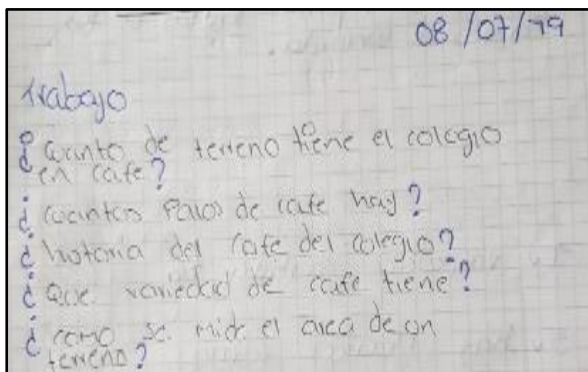 08/07/19
trabajo
¿Cuanto de terreno tiene el colegio
en cafe?
¿cuantos Palos de cafe hay?
¿historia del cafe del colegio?
¿Que variedad de cafe tiene?
¿como se mide el area de un
terreno?